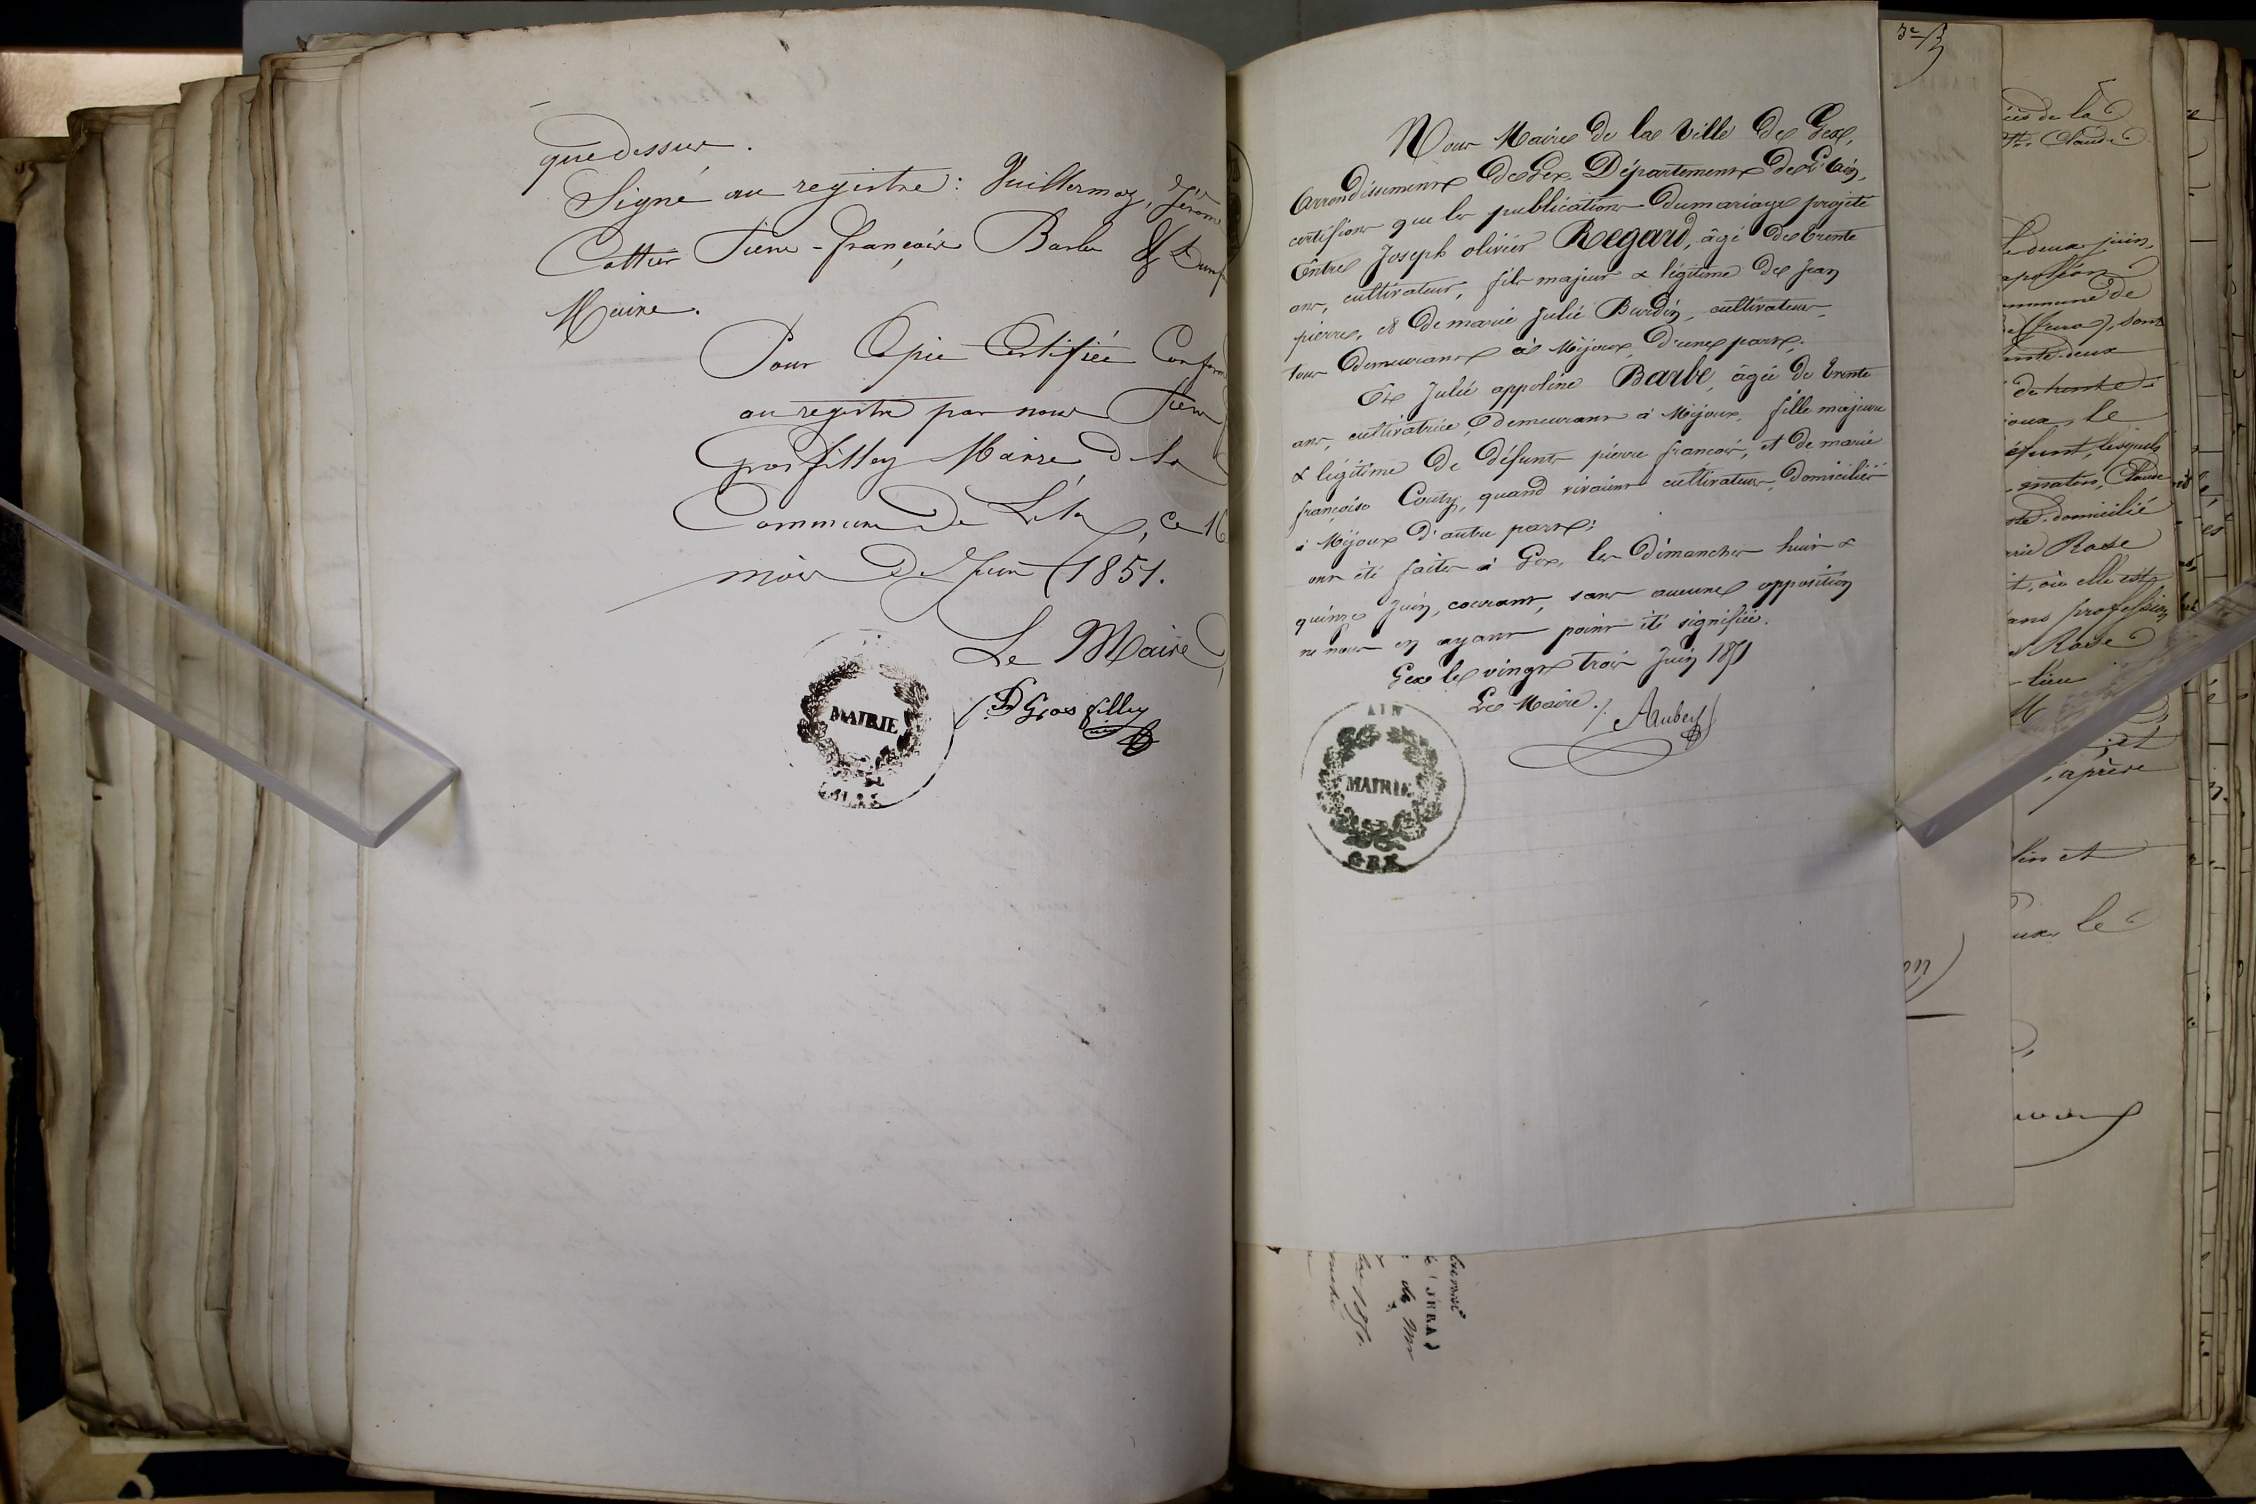 que dessus.
Signé au registre : Vuillermoz, Jérome
Cottier Pierre-françois Barbe &
Maire.
Pour Copie Certifiée Conforme
au registre par nous
Grosfilley Maire de la
Commune De ce 16
mois De Juin 1851.
Le Maire,
Grosfilley
MAIRIE
Nous Maire de la Ville De Gex,
Arrondissement De Gex Département De L'Ain,
certifions que les publications Du mariage projeté
Entre Joseph olivier Regard, âgé De trente
ans, cultivateur, fils majeur & légitime De Jean
pierre, et De marie Julie Burdin, cultivateurs
tous Demeurants à Mijoux, D'une part;
Et Julie appoline Barbe, âgée De trente
ans, cultivatrice, Demeurant à Mijoux, fille majeure
& légitime De Défunts pierre françois, et De marie
françoise Couty, quand vivaient cultivateurs, Domiciliés
à Mijoux D'autre part;
ont été faites à Gex, les Dimanches huit &
quinze Juin, courant, sans aucune opposition
ne nous en ayant point été signifiée.
Gex le vingt trois Juin 1851
Le Maire.
Aubert
AIN
MAIRIE
GEX
3e
ées de la
Claude
le deux juin,
apoléon
commune de
(Jura), sont
de trente
oux, le
éfunt, lesquels
matin, Claude
domicilié
Rose
t, où elle est
ans profession
Rose
lieu
et
, après
lin et
eux le
(JURA)
1851.